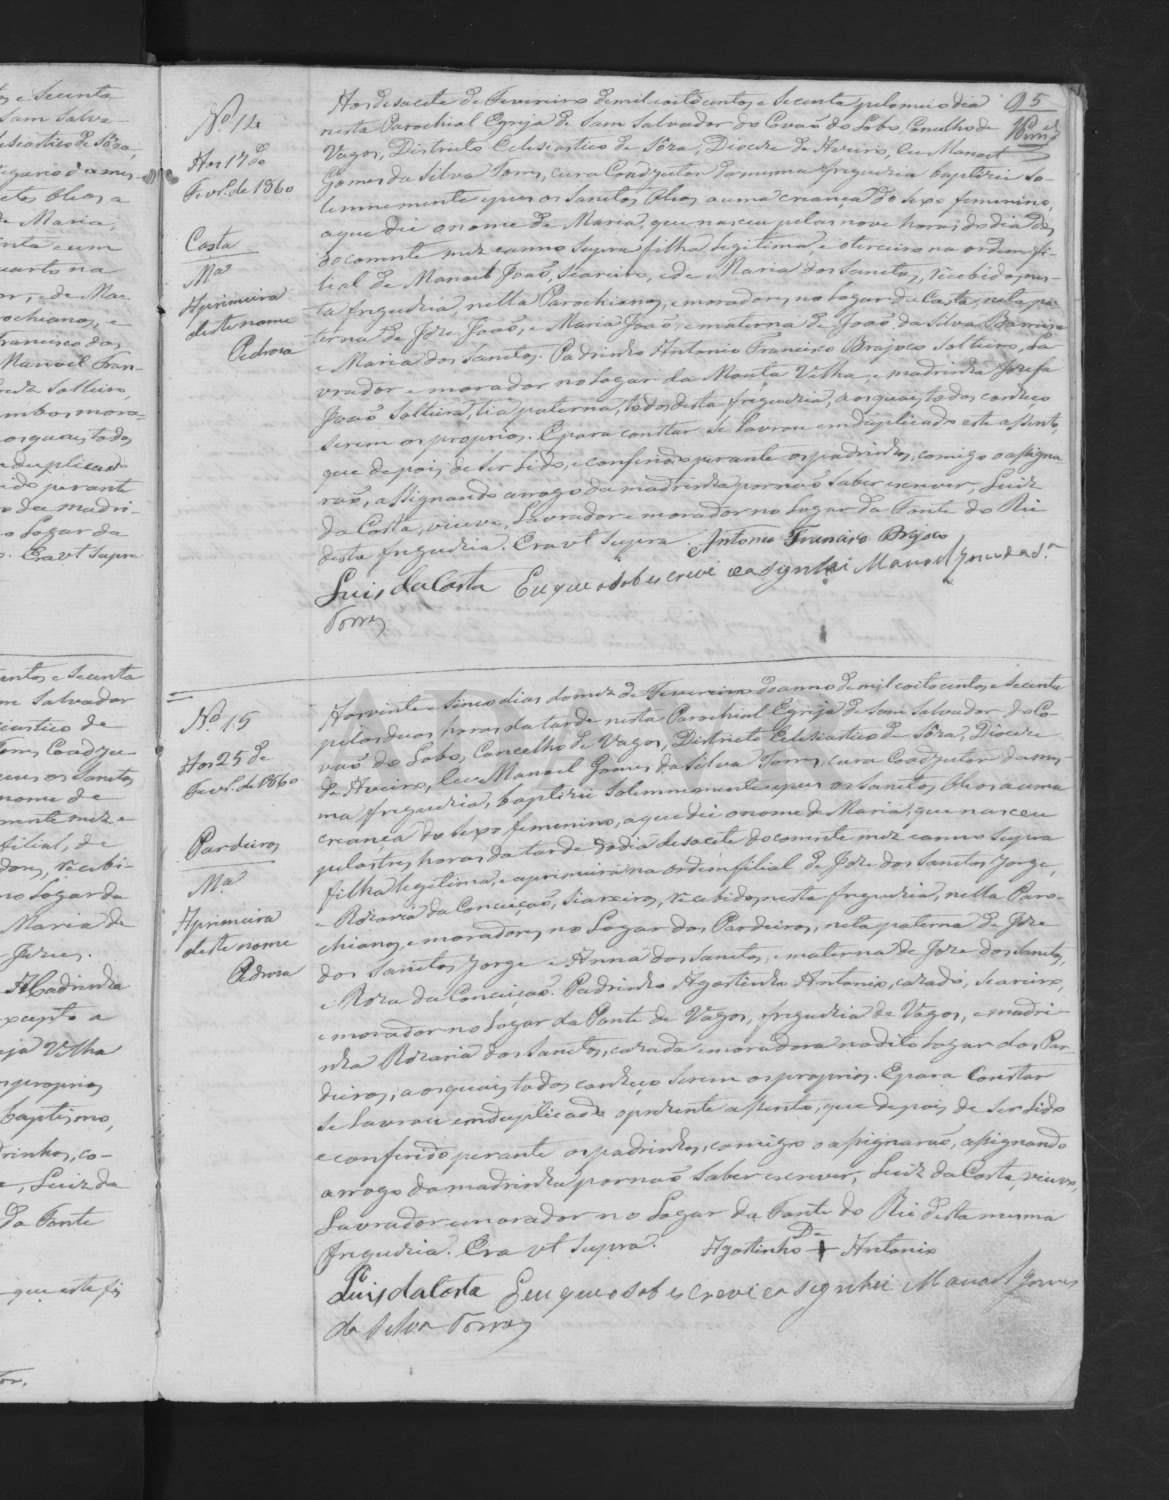 95
Nº 14
Aos 17 de
Fevrº. de 1860
Costa
Mª
A primeira
deste nome
Aos desacete de Fevereiro de mil e oito centos e Secenta pelo meio dia
nesta Parochial Egreja de Sam Salvador do Covaõ do Lobo, Concelho de
Vagos, Districto Eclesiastico de Sôza, Diocese de Aveiro, Eu Manoel
Gomes da Silva Torres, cura Coadjutor da mesma freguezia baptizei So-
lemnemente e pus os Sanctos Oleos a uma creança do Sexo feminino,
a que dei o nome de Maria, que nasceu pelas nove horas do dia
do corrente mez e anno Supra filha legitima, e terceira na ordem fi-
lial de Manoel Joaõ, Seareiro, e de Maria dos Sanctos, recebidos nes-
ta freguezia, nella Parochianos, e moradores no Logar da Costa, neta pa-
terna de Joze Joaõ, e Maria Joaõ, e materna de Joaõ da Silva
e Maria dos Sanctos. Padrinho Antonio Francisco Brajoco Solteiro, La-
vrador e morador no Logar da Mouta Velha, e madrinha Jozefa
Joaõ Solteira, tia paterna, todos desta freguezia, aos quaes todos conheço
serem os proprios. E para constar se lavrou em duplicado este assento,
que depois de ser lido, e conferido perante os padrinhos, comigo o assigna
raõ, assignando a rogo da madrinha por naõ saber escrever, Luiz
da Costa, viuvo, Lavrador e morador no Logar da Fonte do Rei
desta freguezia. Era vt Supra. Antonio Francisco Brajoco
Luis da Costa Eu que o sobescrevi e asignhei Manoel Gomes da Sª
Torres
Nº 15
Aos 25 de
Fevrº. de 1860
Pardeiros
Mª
A primeira
deste nome
Aos vinte e sinco dias do mez de Fevereiro do anno de mil e oito centos e Secenta
pelas duas horas da tarde nesta Parochial Egreja de Sam Salvador do Co-
vaõ do Lobo, Concelho de Vagos, Districto Eclesiastico de Sôza, Diocese
de Aveiro, Eu Manoel Gomes da Silva Torres, cura Coadjutor da mes-
ma freguezia, baptizei Solemnemente e pus os Sanctos Oleos a uma
creança do Sexo feminino, a que dei o nome de Maria, que nasceu
pelas tres horas da tarde do dia desacete do corrente mez e anno Supra
filha legitima, e a primeira na ordem filial de Joze dos Sanctos Jorge,
e Rozaria da Conceiçaõ, Seareiros, recebidos nesta freguezia, nella Paro-
chianos, e moradores no Logar dos Pardeiros, neta paterna de Joze
dos Sanctos Jorge e Anna dos Sanctos, e materna de Joze dos Sanctos,
e Roza da Conceiçaõ. Padrinho Agostinho Antonio, cazado, Seareiro,
e morador no Logar da Ponte de Vagos, freguezia de Vagos, e madri-
nha Rozaria dos Sanctos, cazada e moradora no dito Logar dos Par-
deiros, aos quaes todos conheço serem os proprios. E para Constar
se lavrou em duplicado o prezente assento, que depois de ser lido
e conferido perante os padrinhos, comigo o assignaraõ, assignando
a rogo da madrinha por naõ saber escrever, Luiz da Costa, viuvo,
Lavrador e morador no Logar da Fonte do Rei desta mesma
freguezia. Era vt Supra. Agostinho + Antonio
Luis da Costa Eu que o sobescrevi e asignhei Manoel Gomes
da Silva Torres